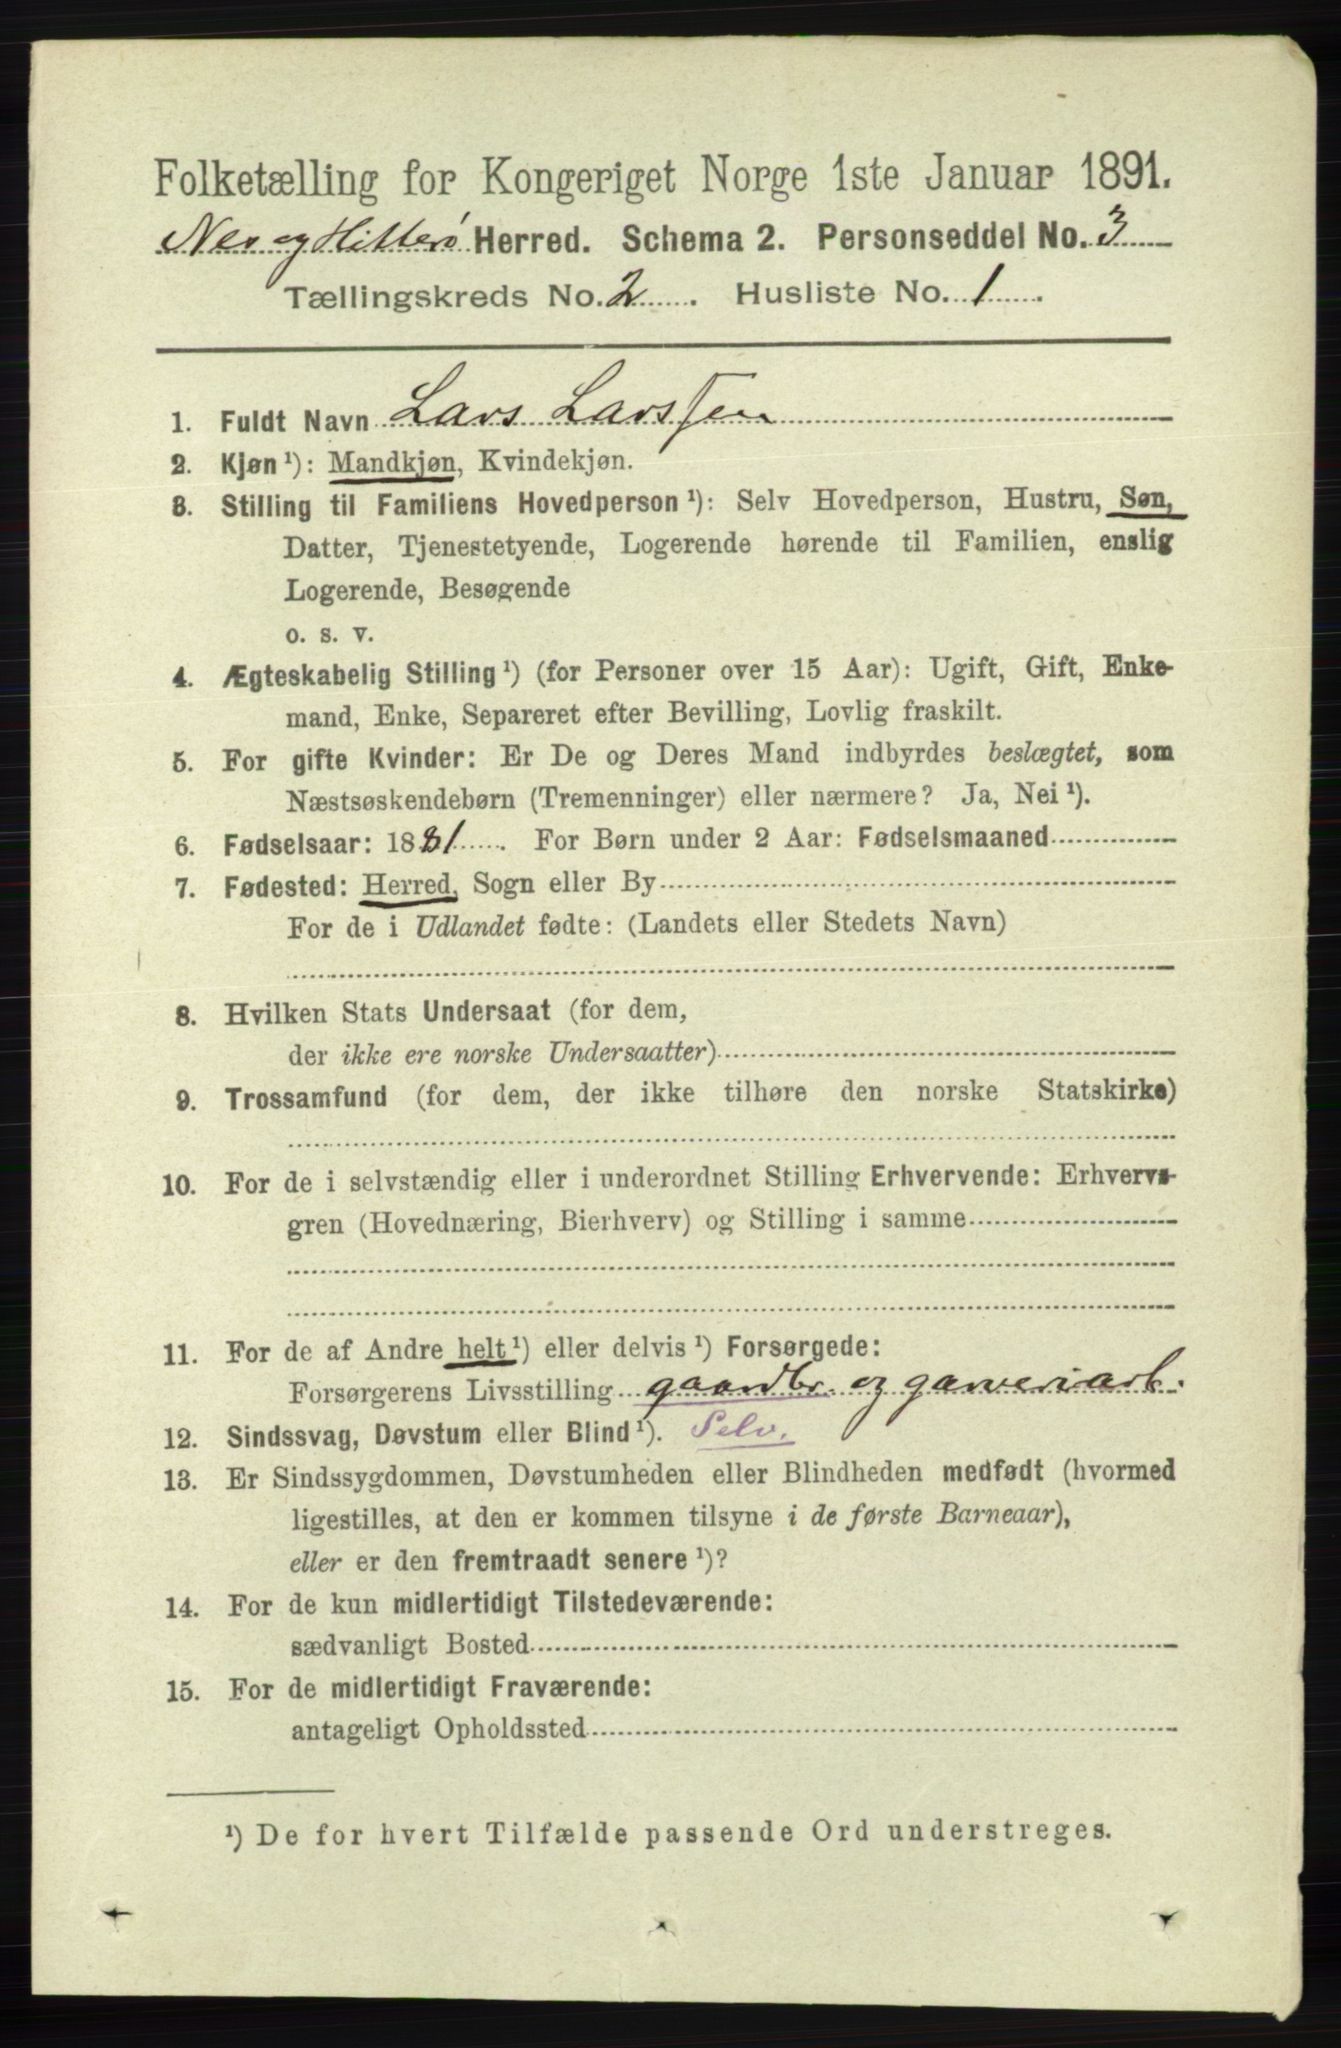 Folketælling for Kongeriget Norge 1ste Januar 1891.
Nes og Hitterø Herred. Schema 2. Personseddel No. 3
Tællingskreds No. 2. Husliste No. 1.
1. Fuldt Navn Lars Larssen
2. Kjøn ¹): Mandkjøn, Kvindekjøn.
3. Stilling til Familiens Hovedperson ¹): Selv Hovedperson, Hustru, Søn,
Datter, Tjenestetyende, Logerende hørende til Familien, enslig
Logerende, Besøgende
o. s. v.
4. Ægteskabelig Stilling ¹) (for Personer over 15 Aar): Ugift, Gift, Enke-
mand, Enke, Separeret efter Bevilling, Lovlig fraskilt.
5. For gifte Kvinder: Er De og Deres Mand indbyrdes beslægtet, som
Næstsøskendebørn (Tremenninger) eller nærmere? Ja, Nei ¹).
6. Fødselsaar: 1881. For Børn under 2 Aar: Fødselsmaaned
7. Fødested: Herred, Sogn eller By
For de i Udlandet fødte: (Landets eller Stedets Navn)
8. Hvilken Stats Undersaat (for dem,
der ikke ere norske Undersaatter)
9. Trossamfund (for dem, der ikke tilhøre den norske Statskirke)
10. For de i selvstændig eller i underordnet Stilling Erhvervende: Erhvervs-
gren (Hovednæring, Bierhverv) og Stilling i samme
11. For de af Andre helt ¹) eller delvis ¹) Forsørgede:
Forsørgerens Livsstilling gaardbr. og garveriarb.
12. Sindssvag, Døvstum eller Blind ¹). Selv.
13. Er Sindssygdommen, Døvstumheden eller Blindheden medfødt (hvormed
ligestilles, at den er kommen tilsyne i de første Barneaar),
eller er den fremtraadt senere ¹)?
14. For de kun midlertidigt Tilstedeværende:
sædvanligt Bosted
15. For de midlertidigt Fraværende:
antageligt Opholdssted
¹) De for hvert Tilfælde passende Ord understreges.